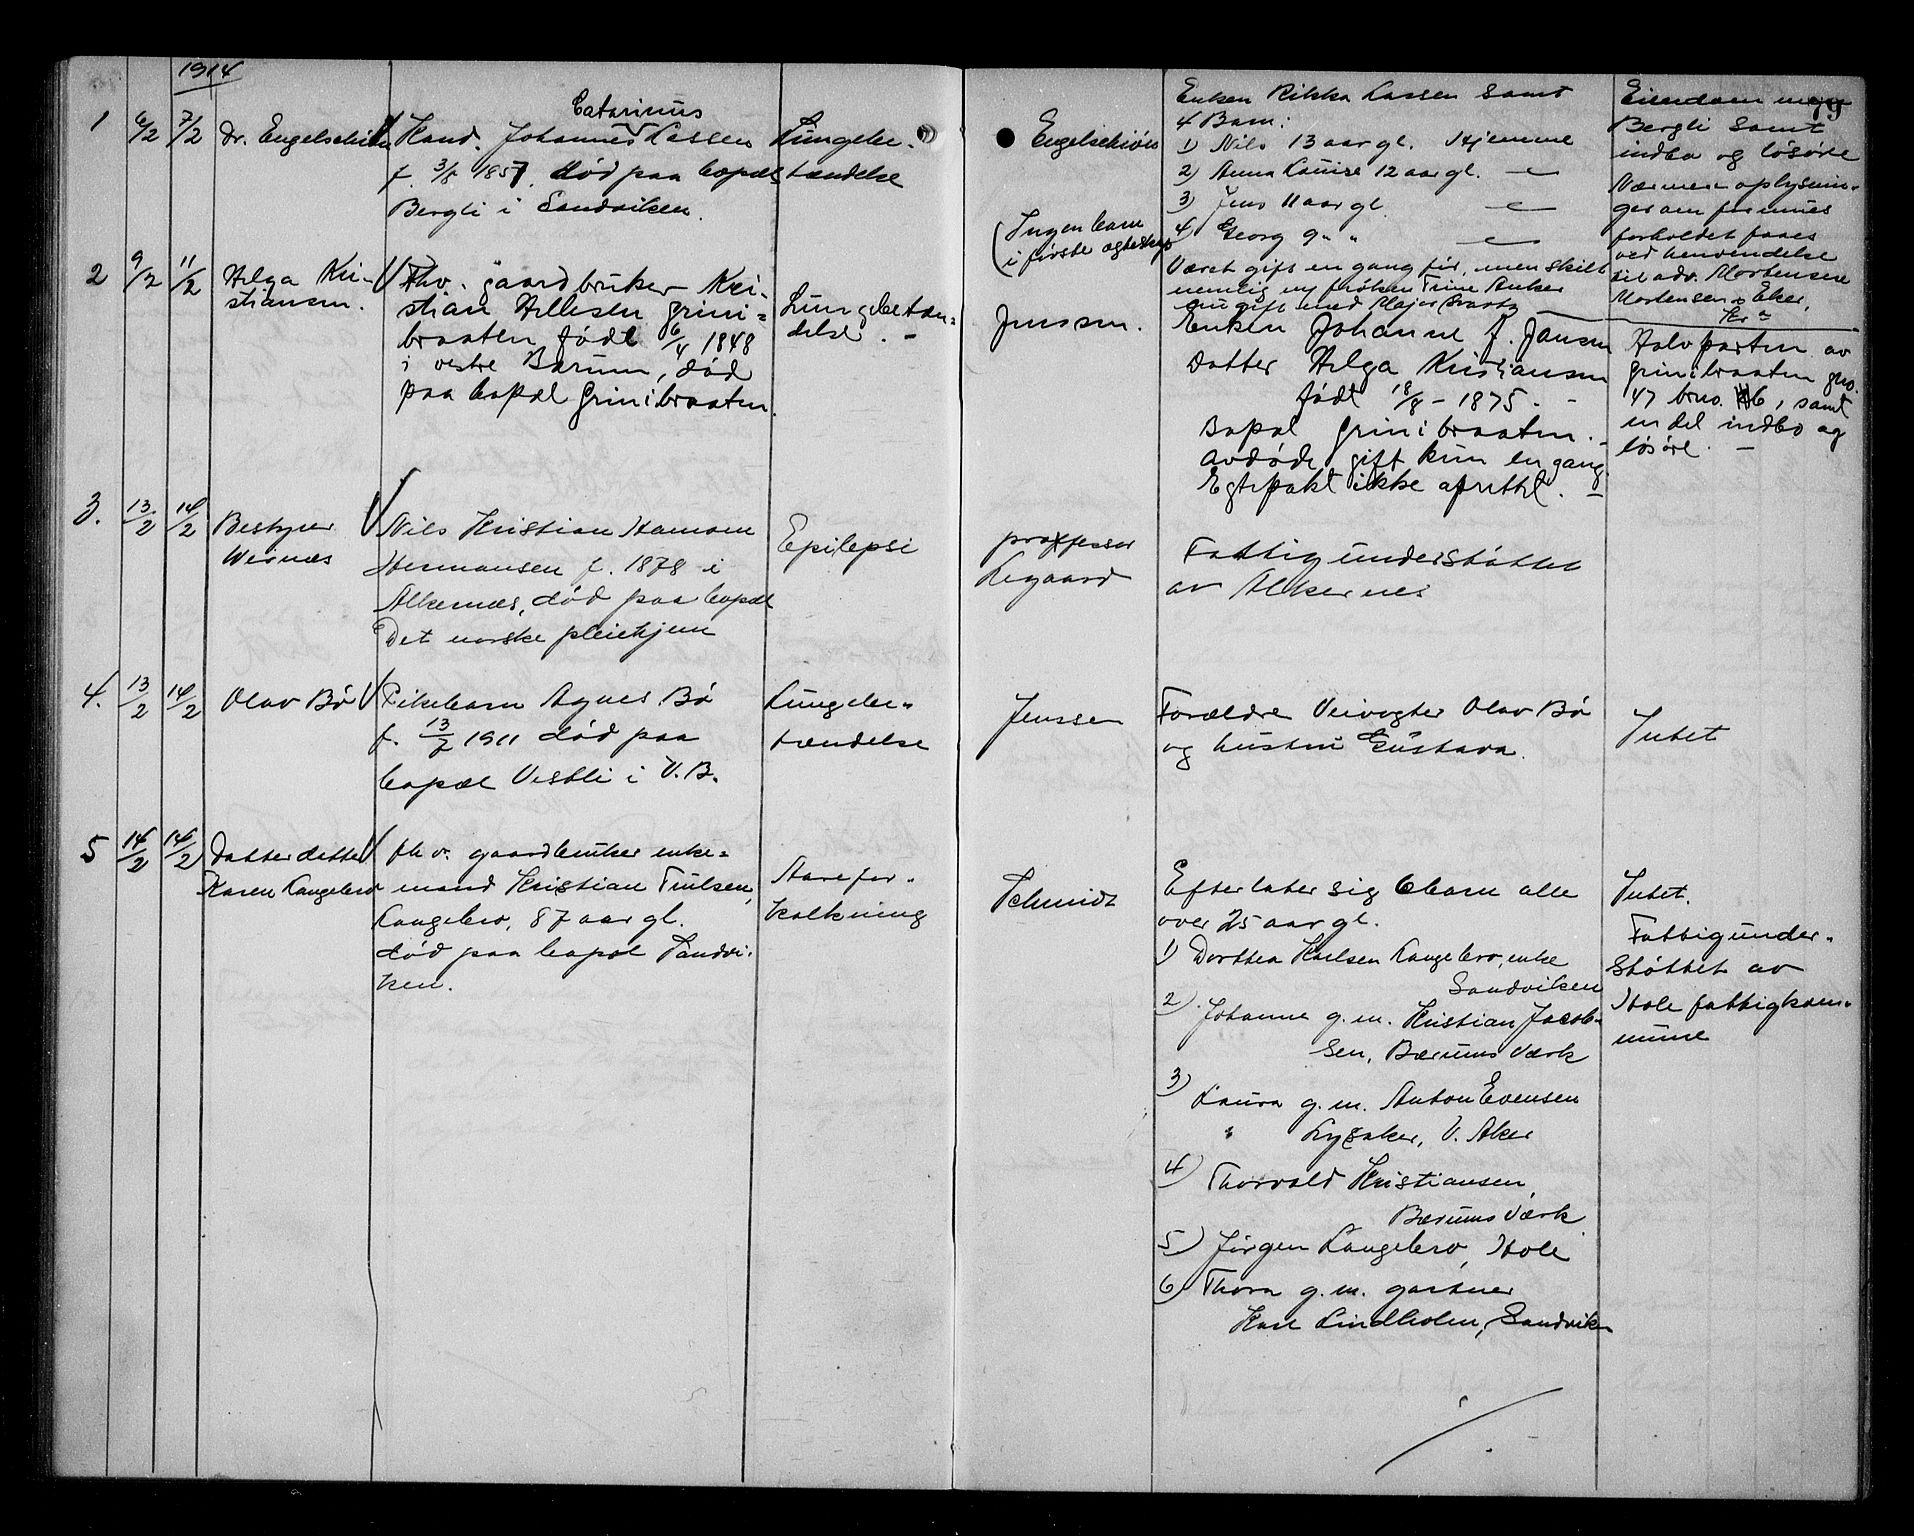 1914
79
1 6/2 7/2 Dr. Engelschiøn
Catarinus
Kand. Johannes Lassen
f. 3/8 1857. død paa bopæl
Bergli i Sandviken.
Lungebe-
tændelse
Engelschiøn
(Ingen barn
i første ægteskap
Enken Rikka Lassen samt
4 Barn:
1) Nils 13 aar gl. Hjemme
2) Anna Louise 12 aar gl. —
3) Jens 11 aar gl. —
4) Georg 9 " " —
Været gift en gang før, men skilt
nemlig m/ frøken Trine Anker
nu gift med Major Svartz
Eiendommen
Bergli samt
indbo og løsøre
Nærmere oplysnin-
ger om formues
forholdet faaes
ved henvendelse
til adv. Mortensen
Mortensen & Eker,
Kr.a
2 9/2 11/2 Helga Kri-
stiansen.
Fhv. gaardbruker Kri-
stian Hellesen Grini-
braaten født 6/4 1848
i vestre Bærum, død
paa bopæl Grinibraaten.
Lungebetæn-
delse. -
Jenssen.
Enken Johanne f. Jansen
Datter Helga Kristiansen
født 18/8 - 1875. -
Bopæl Grinibraaten. -
Avdøde gift kun en gang.
Egtepakt ikke oprettet. -
Halvparten av
Grinibraaten gno.
47 brno. 6, samt
en del indbo og
løsøre. -
3. 13/2 14/2 Bestyrer
Weisnæs
Nils Kristian Hanson
Hermansen f. 1878 i
Alkernæs, død paa bopæl
Det norske pleiehjem
Epilepsi
professor
Legaard
Fattigunderstøttet
av Alkernes
4. 13/2 14/2 Olav Bø
Pikebarn Agnes Bø
f. 13/7 1911 død paa
bopæl Vestli i V. B.
Lungebe-
tændelse
Jenssen
Forældre Veivogter Olav Bø
og hustru Gustava.
Intet
5 14/2 14/2 Datterdatter
Karen Langebro
fhv. gaardbruker enke-
mand Kristian Trulsen,
Langebro, 87 aar gl.
død paa bopæl Sandvi-
ken.
Aarefor-
kalkning
Schmidt
Efterlater sig 6 barn alle
over 25 aar gl.
1) Dorthea Karlsen Langebro, enke
Sandviken
2) Johanne g. m. Kristian Jacob-
sen, Bærums Værk
3) Laura g. m. Anton Evensen
Lysaker, V. Aker
4) Thorvald Kristiansen,
Bærums Værk
5) Jørgen Langebro, Hole
6) Thora g. m. gartner
Karl Lindholm, Sandviken
Intet.
Fattigunder-
støttet av
Hole fattigkom-
mune